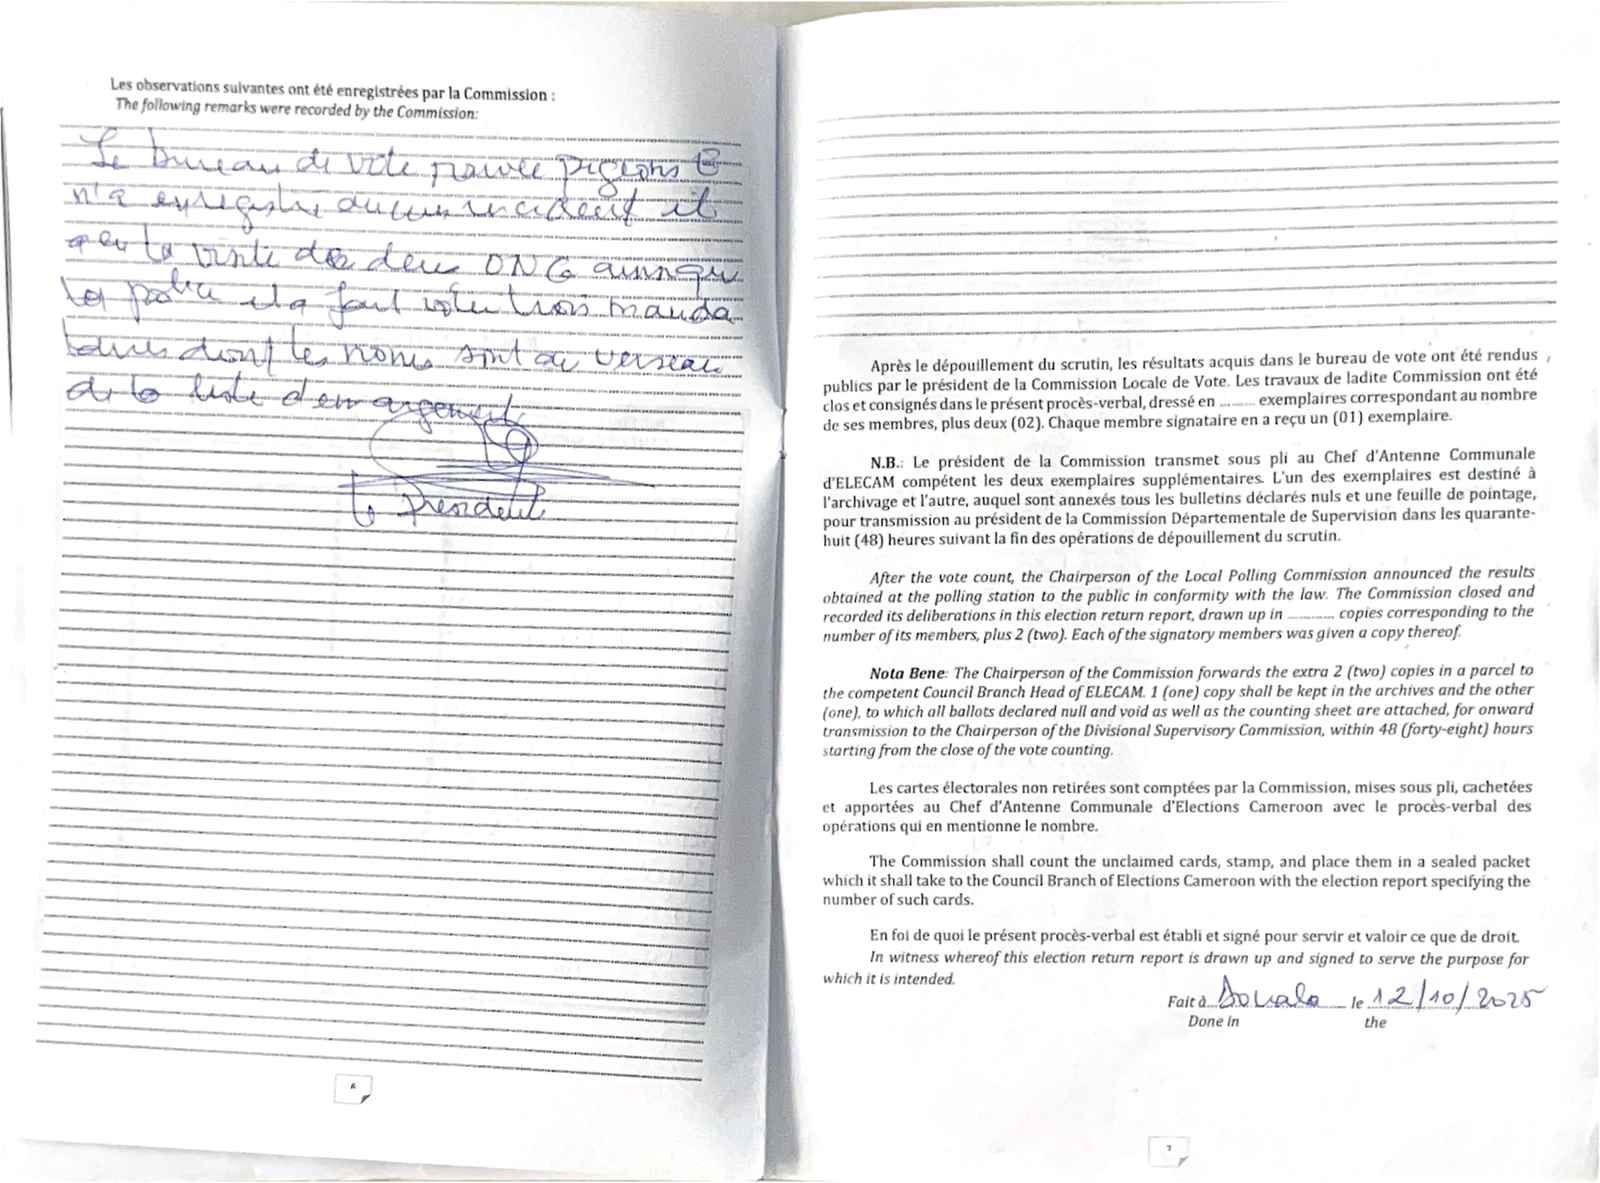 Les observations suivantes ont été enregistrées par la Commission :
The following remarks were recorded by the Commission:
Le bureau de vote pigeons
n'a enregistré aucun incident et
a eu la visite des deux ONG ainsi que
la police et a fait voter trois manda
taires dont les noms sont au verseau
de la liste d'emargement
Le President
6
Après le dépouillement du scrutin, les résultats acquis dans le bureau de vote ont été rendus
publics par le président de la Commission Locale de Vote. Les travaux de ladite Commission ont été
clos et consignés dans le présent procès-verbal, dressé en ......... exemplaires correspondant au nombre
de ses membres, plus deux (02). Chaque membre signataire en a reçu un (01) exemplaire.
N.B.: Le président de la Commission transmet sous pli au Chef d'Antenne Communale
d'ELECAM compétent les deux exemplaires supplémentaires. L'un des exemplaires est destiné à
l'archivage et l'autre, auquel sont annexés tous les bulletins déclarés nuls et une feuille de pointage,
pour transmission au président de la Commission Départementale de Supervision dans les quarante-
huit (48) heures suivant la fin des opérations de dépouillement du scrutin.
After the vote count, the Chairperson of the Local Polling Commission announced the results
obtained at the polling station to the public in conformity with the law. The Commission closed and
recorded its deliberations in this election return report, drawn up in ............ copies corresponding to the
number of its members, plus 2 (two). Each of the signatory members was given a copy thereof.
Nota Bene: The Chairperson of the Commission forwards the extra 2 (two) copies in a parcel to
the competent Council Branch Head of ELECAM. 1 (one) copy shall be kept in the archives and the other
(one), to which all ballots declared null and void as well as the counting sheet are attached, for onward
transmission to the Chairperson of the Divisional Supervisory Commission, within 48 (forty-eight) hours
starting from the close of the vote counting.
Les cartes électorales non retirées sont comptées par la Commission, mises sous pli, cachetées
et apportées au Chef d'Antenne Communale d'Elections Cameroon avec le procès-verbal des
opérations qui en mentionne le nombre.
The Commission shall count the unclaimed cards, stamp, and place them in a sealed packet
which it shall take to the Council Branch of Elections Cameroon with the election report specifying the
number of such cards.
En foi de quoi le présent procès-verbal est établi et signé pour servir et valoir ce que de droit.
In witness whereof this election return report is drawn up and signed to serve the purpose for
which it is intended.
Fait à Douala le 12/10/2025
Done in the
7